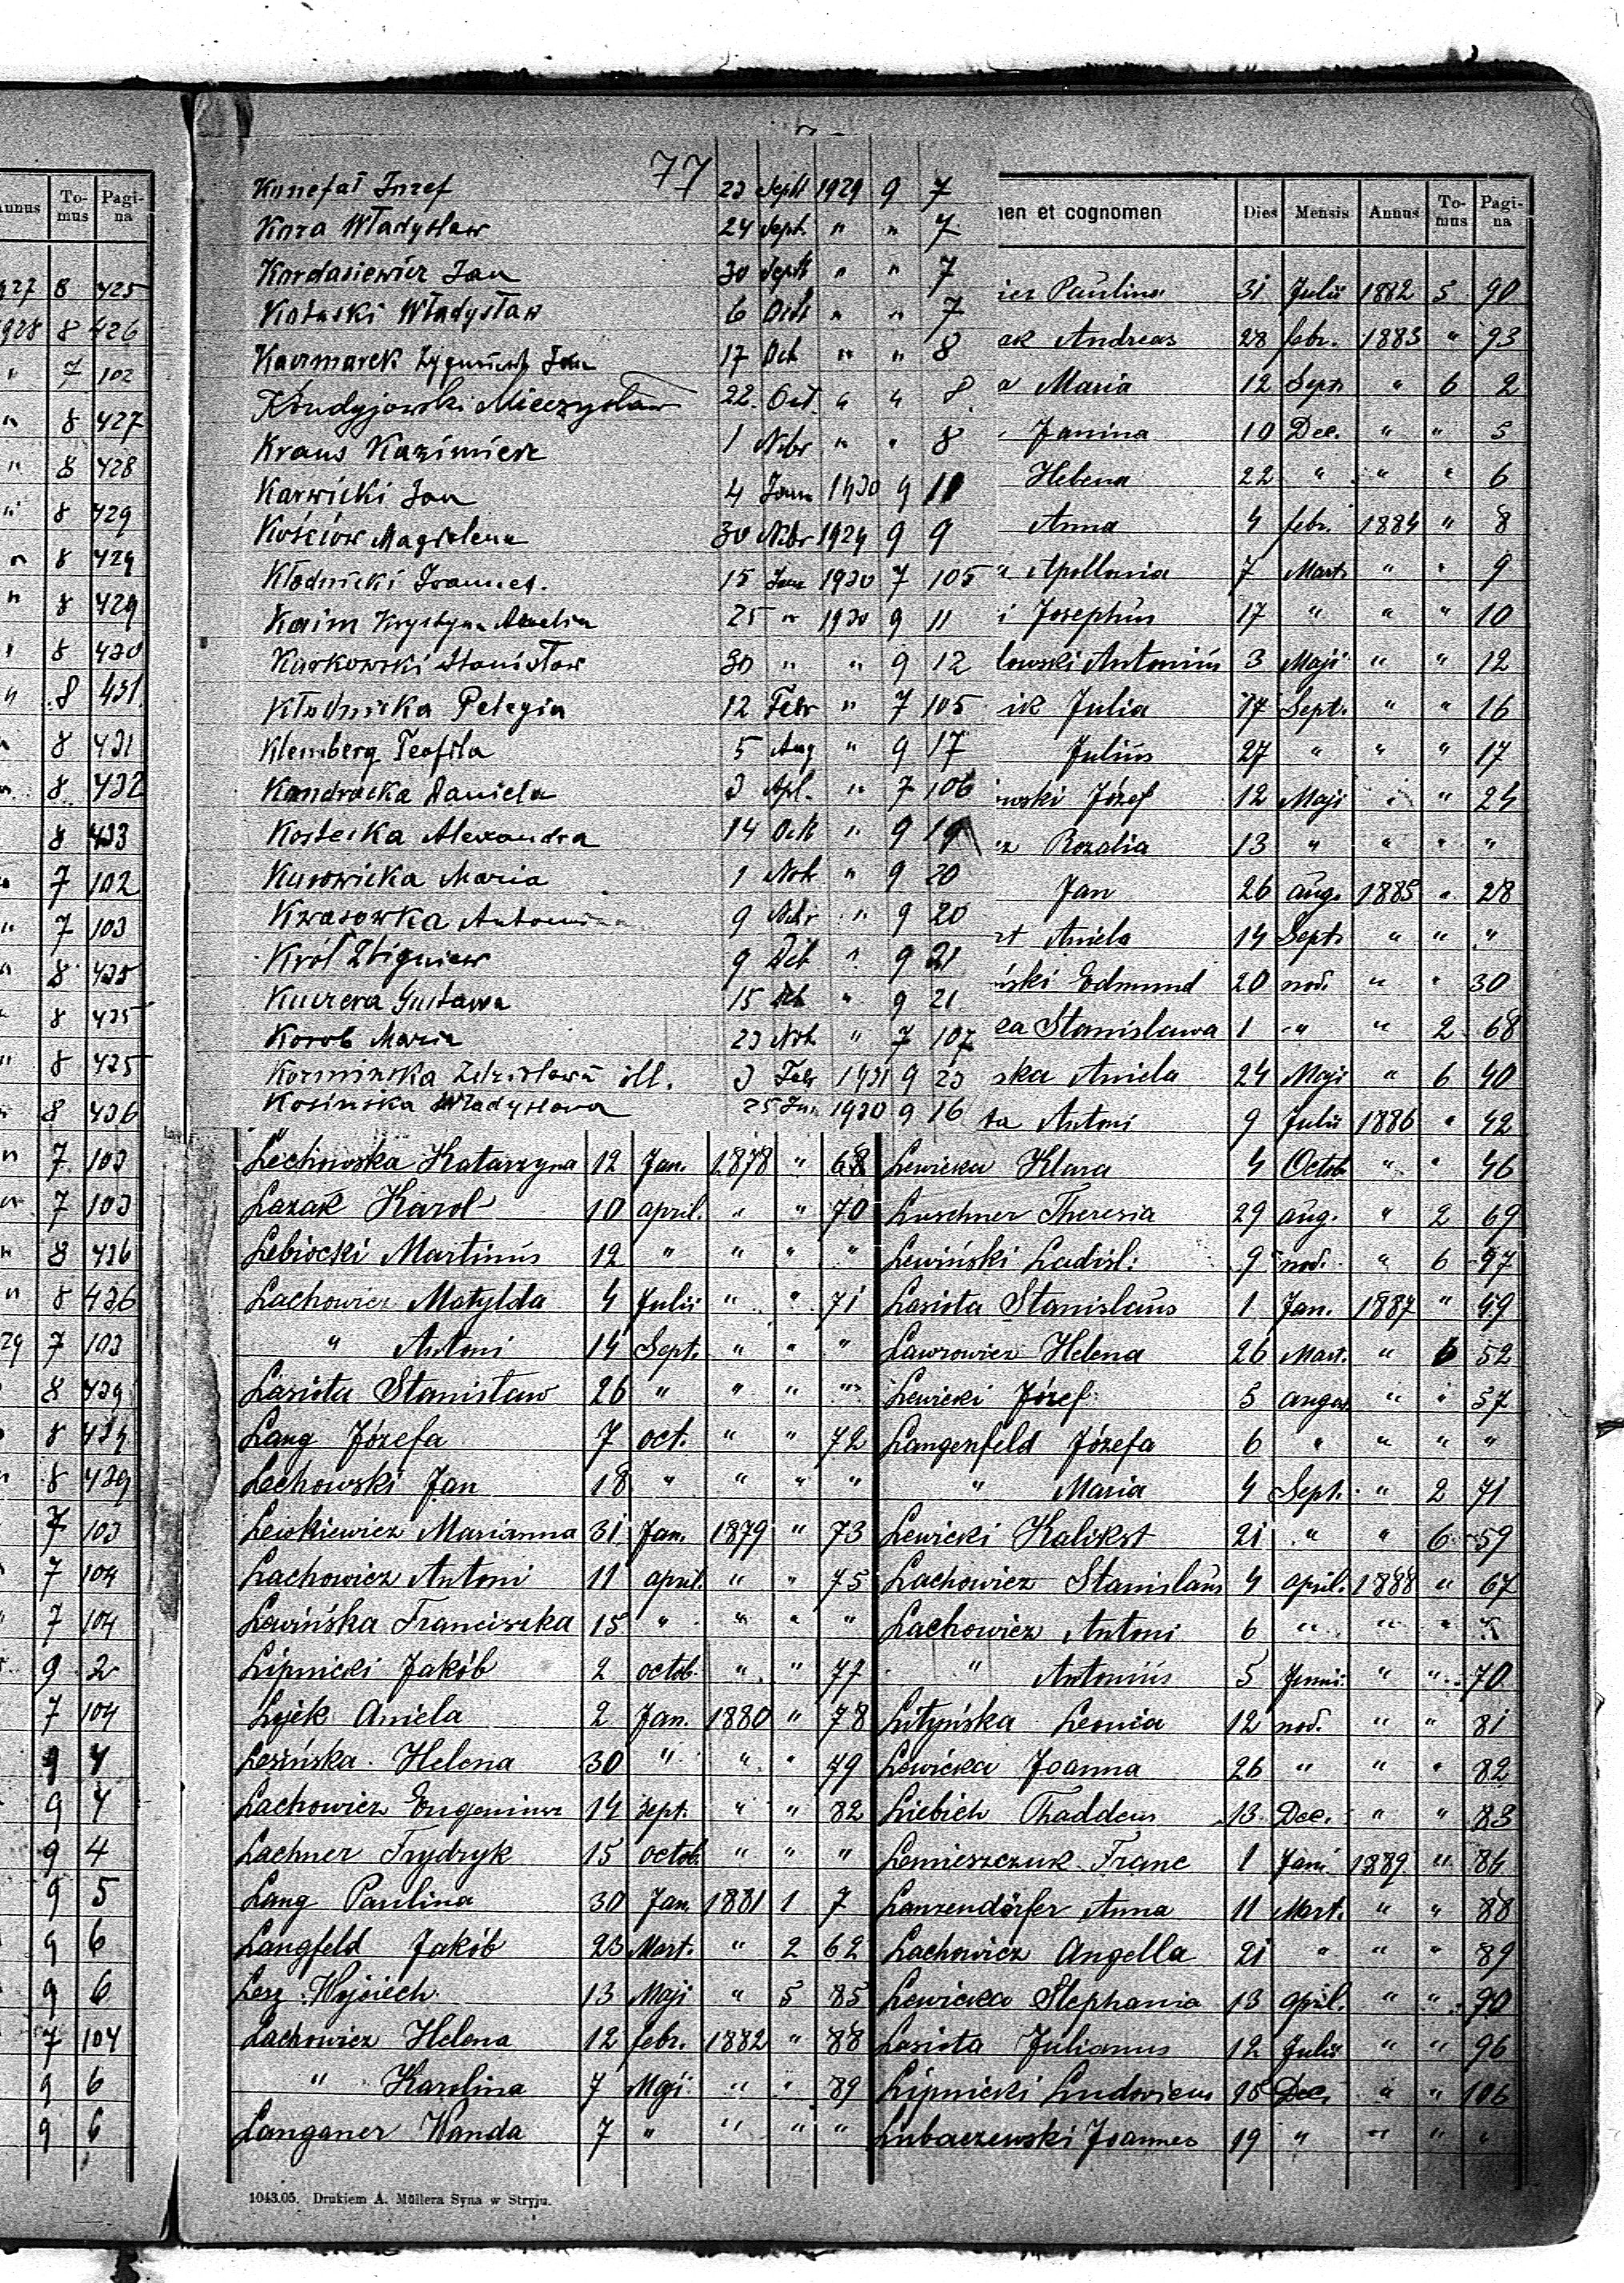 Annus To-mus Pagi-na
927 8 425
1928 8 426
" 7 102
" 8 427
" 8 428
" 8 429
" 8 429
" 8 429
" 8 430
" 8 431
" 8 431
" 8 432
8 433
7 102
" 7 103
8 435
8 435
" 8 435
8 436
" 7 103
7 103
" 8 436
" 8 436
29 7 103
8 439
8 439
8 439
7 103
7 104
7 104
9 2
7 104
9 4
9 4
9 4
9 5
9 6
9 6
7 104
9 6
9 6
77
Kunefał Józef 23 Sept 1929 9 7
Koza Władysław 24 Sept. " " 7
Kordasiewicz Jan 30 Sept " " 7
Władysław 6 Oct " " 7
Kaczmarek Zygmunt Jan 17 Oct " " 8
Kondyjowski Mieczysław 22. Oct. " " 8
Kraus Kazimierz 1 Nbr " " 8
Karwicki Jan 4 Jann 1930 9 11
Kościów Magdalena 30 Nbr 1929 9 9
Kłodnicki Joannes. 15 Jan 1930 7 105
Kaim Krystyna 25 " 1930 9 11
Karkowski Stanisław 30 " " 9 12
Kłodnicka Pelagia 12 Febr " 7 105
Klemberg Teofila 5 Aug " 9 17
Kondracka Daniela 3 Apl. " 7 106
Kostecka Alexandra 14 Oct " 9 19
Kurowicka Maria 1 Nob " 9 20
Kwasowka Antonina 9 Nbr " 9 20
Król Zbigniew 9 Deb " 9 21
Gustawa 15 " 9 21
Korob Maria 23 Nob " 7 107
Korminska Zdzisława ill. 3 Febr 1931 9 23
Kosinska Władysława 25 Jun 1930 9 16
Lechowska Katarzyna 12 Jan. 1878 " 68
Lazak Karol 10 april. " " 70
Lebiocki Martinus 12 " " " "
Lachowicz Matylda 4 Julii " " 71
" Antoni 14 Sept. " " "
Lasiota Stanisław 26 " " " "
Lang Józefa 7 oct. " " 72
Lechowski Jan 18 " " " "
Lewkiewicz Marianna 31 Jan. 1879 " 73
Lachowicz Antoni 11 april. " " 75
Lewińska Franciszka 15 " " " "
Lipnicki Jakób 2 octob. " " 77
Lyjek Aniela 2 Jan. 1880 " 78
Lesińska Helena 30 " " " 79
Lachowicz Eugeniusz 14 Sept. " " 82
Lachner Frydryk 15 octob. " " "
Lang Paulina 30 Jan. 1881 1 7
Langfeld Jakób 23 Mart. " 2 62
Lesz Wojciech 13 Maji " 5 85
Lachowicz Helena 12 febr. 1882 " 88
" Karolina 7 Maji " " 89
Langaner Wanda 7 " " " "
1043.05. Drukiem A. Müllera Syna w Stryju.
men et cognomen Dies Mensis Annus To-mus Pagi-na
Paulina 31 Julii 1882 5 90
Andreas 28 febr. 1883 " 93
Maria 12 Sept " 6 2
Janina 10 Dec. " " 5
Helena 22 " " " 6
Anna 4 febr. 1884 " 8
Apollonia 7 Mart. " " 9
Josephus 17 " " " 10
lowski Antonius 3 Maji " " 12
ik Julia 17 Sept. " " 16
Julius 27 " " " 17
wski Józef 12 Maji " " 24
Rozalia 13 " " " "
Jan 26 aug. 1885 " 28
Aniela 14 Sept. " " "
ski Edmund 20 nov. " " 30
Stanisława 1 " " 2 68
ska Aniela 24 Maji " 6 40
Antoni 9 Julii 1886 " 42
Lewicka Klara 4 Octob " " 46
Luschner Theresia 29 aug. " 2 69
Lewiński Ladisl: 9 nov. " 6 97
Lasiota Stanislaus 1 Jan. 1887 " 49
Lawrowicz Helena 26 Mart. " 6 52
Lewicki Józef 5 august " " 57
Langenfeld Józefa 6 " " " "
" Maria 4 Sept. " 2 71
Lewicki Kalikst 21 " " 6 59
Lachowicz Stanislaus 4 april. 1888 " 67
Lachowicz Antoni 6 " " " "
" Antonius 5 Junii " " 70
Lityńska Leonia 12 nov. " " 81
Lewicka Joanna 26 " " " 82
Liebich Thaddeus 13 Dec. " " 83
Lemieszczuk Franc 1 Jan. 1889 " 84
Lanzendörfer Anna 11 Mart. " " 88
Lachowicz Angella 21 " " " 89
Lewicka Stephania 13 april. " " 90
Lasiota Julianus 12 Julii " " 96
Lipnicki Ludovicus 15 Dec. " " 106
Lubaczewski Joannes 19 " " " "